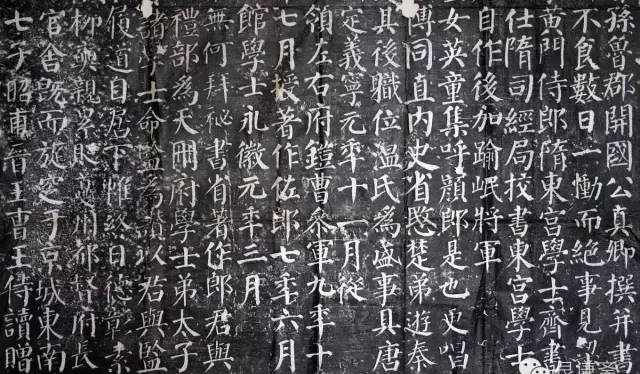 孫魯郡開國公真卿撰并書
不食數日一慟而絕事見
黃門侍郎隋東宮學士齊書
仕隋司經局挍書東宮學士
自作後加踰岷將軍
女英童集呼顏郎是也更唱
傳同直內史省愍楚弟遊秦
其後職位溫氏為盛事具唐
定義寧元年十一月從
領左右府鎧曹參軍九年十
七月授著作佐郎七年六月
館學士永徽元年三月
無何拜秘書省著作郎君與
禮部為天冊府學士弟太子
諸學士命監為讚以君與監
道日居下帷終日德彰素
柳奭親累貶夔州都督府長
官舍既而旋窆于京城東南
七子昭甫晉王曹王侍讀贈